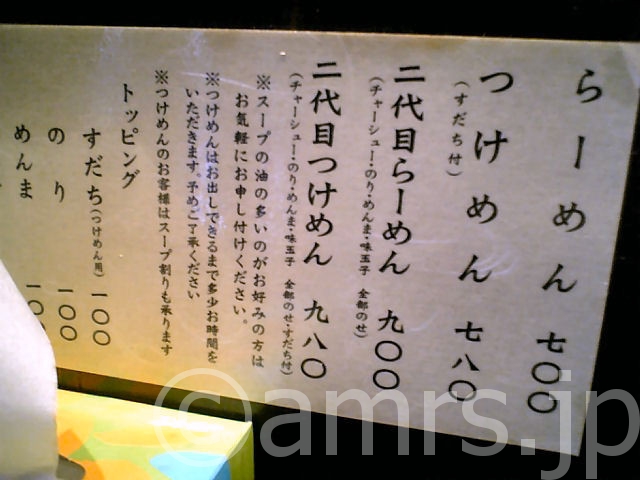 らーめん 七〇〇
つけめん 七八〇
(すだち付)
二代目らーめん 九〇〇
(チャーシュー・のり・めんま・味玉子 全部のせ)
二代目つけめん 九八〇
(チャーシュー・のり・めんま・味玉子 全部のせ・すだち付)
※スープの油の多いのがお好みの方は
お気軽にお申し付けください。
※つけめんはお出しできるまで多少お時間を
いただきます。予めご了承ください
※つけめんのお客様はスープ割りも承ります
トッピング
すだち(つけめん用) 一〇〇
のり 一〇〇
めんま 一〇〇
©amrs.jp